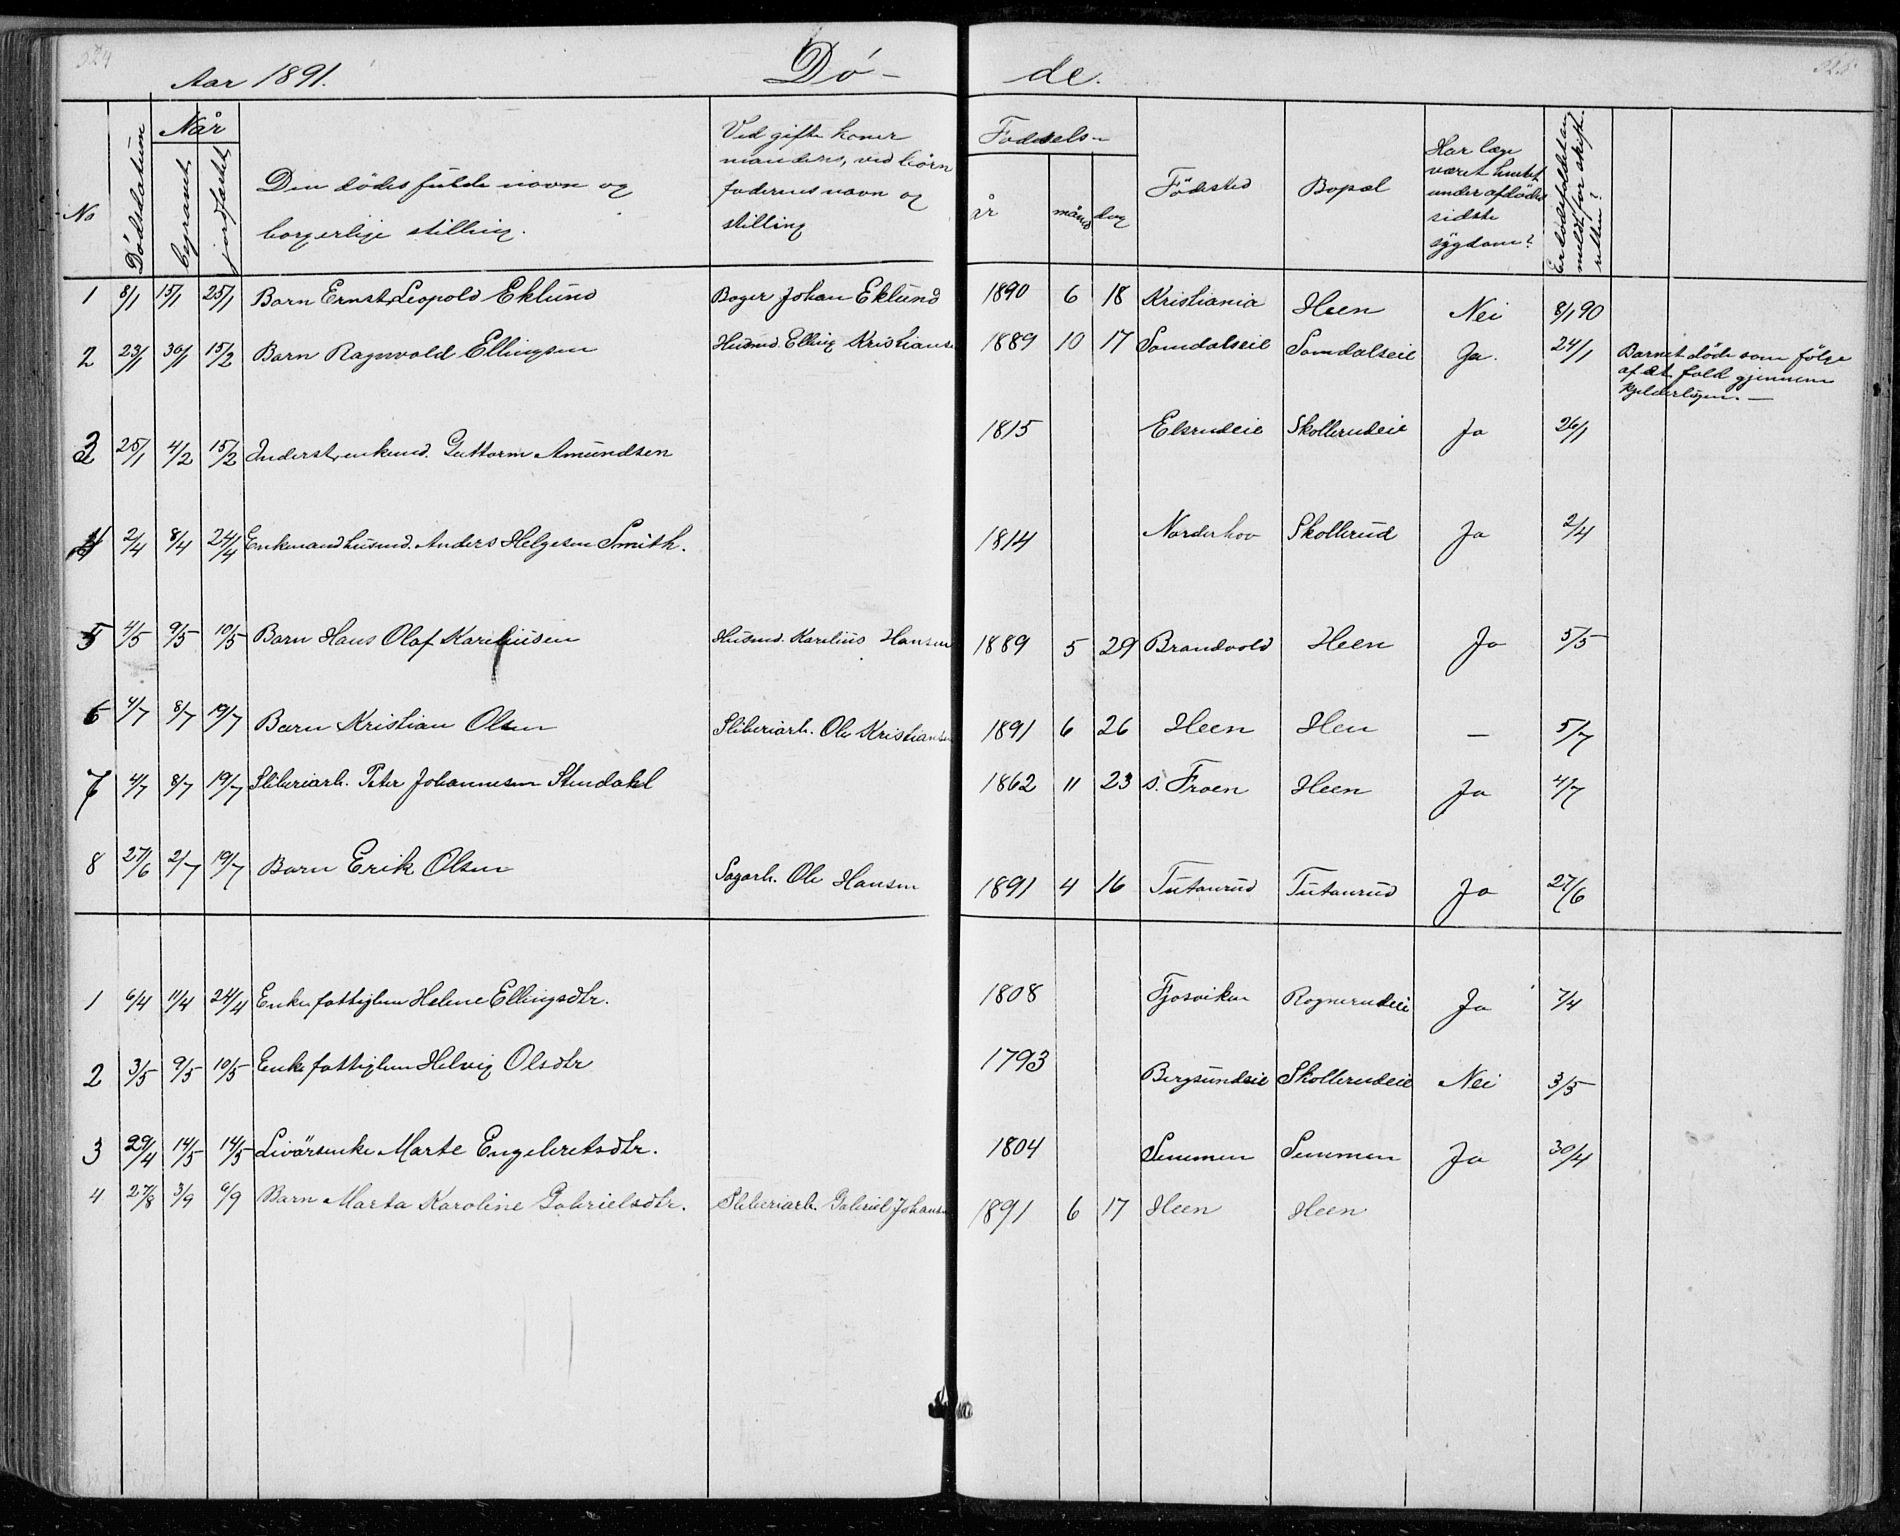 324
325
Aar 1891.
Dö-
de.
No
Dödsdatum
Når
begravet
jordfæstet
Den dödes fulde navn og
borgerlige stilling.
Ved gifte koner
mandens, ved börn
faderens navn og
stilling
Fødsels-
år
måned
dag
Födested
Bopæl
Har læge
været hentet
under afdödes
sidste
sygdom?
Er dödsfaldet an
meldt for skifte
retten?
1 8/1 15/1 25/1 Barn Ernst Leopold Eklund Bager Johan Eklund 1890 6 18 Kristiania Heen Nei 8/1 90
2 23/1 30/1 15/2 Barn Ragnvald Ellingsen Husmd. Elling Kristiansen 1889 10 17 Somdalseie Somdalseie Ja. 24/1 Barnet döde som fölge
af et fald gjennem
kjelderlugen. —
3 25/1 4/2 15/2 Inderst, enkemd. Guttorm Amundsen 1815 Elsrudeie Skollerudeie Ja 26/1
4 2/4 8/4 24/4 Enkemand husmd. Anders Helgesen Smith. 1814 Norderhov Skollerud Ja 2/4
5 4/5 9/5 10/5 Barn Hans Olaf Kareliusen Husmd. Karelius Hansen 1889 5 29 Brandvold Heen Ja 5/5
6 4/7 8/7 19/7 Barn Kristian Olsen Sliberiarb. Ole Kristiansen 1891 6 26 Heen Hen — 5/7
7 4/7 8/7 19/7 Sliberiarb. Peter Johannesen Stendahl 1862 11 23 s. Froen Heen Ja 4/7
8 27/6 2/7 19/7 Barn Erik Olsen Sagarb. Ole Hansen 1891 4 16 Tutanrud Tutanrud Ja 27/6
1 6/4 11/4 24/4 Enke, fattiglem Helene Ellingsdtr. 1808 Fjosviken Rognerudeie Ja 7/4
2 3/5 9/5 10/5 Enke fattiglem Helvig Olsdtr 1793 Bergsundseie Skollerudeie Nei 3/5
3 29/4 14/5 14/5 Livörsenke Marte Engebretsdtr. 1804 Semmen Semmen Ja 30/4
4 27/8 3/9 6/9 Barn Marta Karoline Gabrielsdtr. Sliberiarb. Gabriel Johansen 1891 6 17 Heen Heen